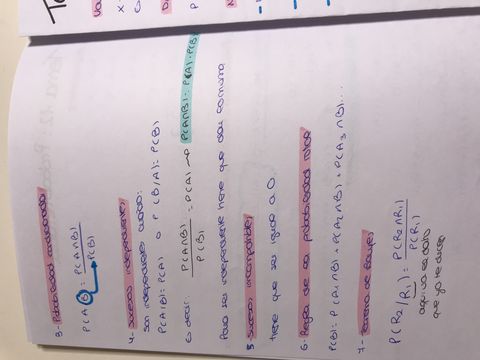 3- Probabilidad condicionada
P(A/B) = P(A∩B) / P(B)
4- Sucesos independientes
Son independientes cuando:
P(A/B) = P(A) o P(B/A) = P(B)
Es decir: P(A∩B) / P(B) = P(A) → P(A∩B) = P(A)·P(B)
Para ser independiente tiene que dar lo mismo
5- Sucesos incompatibles
tiene que ser igual a 0.
6- Regla de la probabilidad total
P(B) = P(A1∩B) + P(A2∩B) + P(A3∩B)...
7- Teorema de Bayes
P(R2/R1) = P(R2∩R1) / P(R1)
aquí va el dato
que ya te dicen